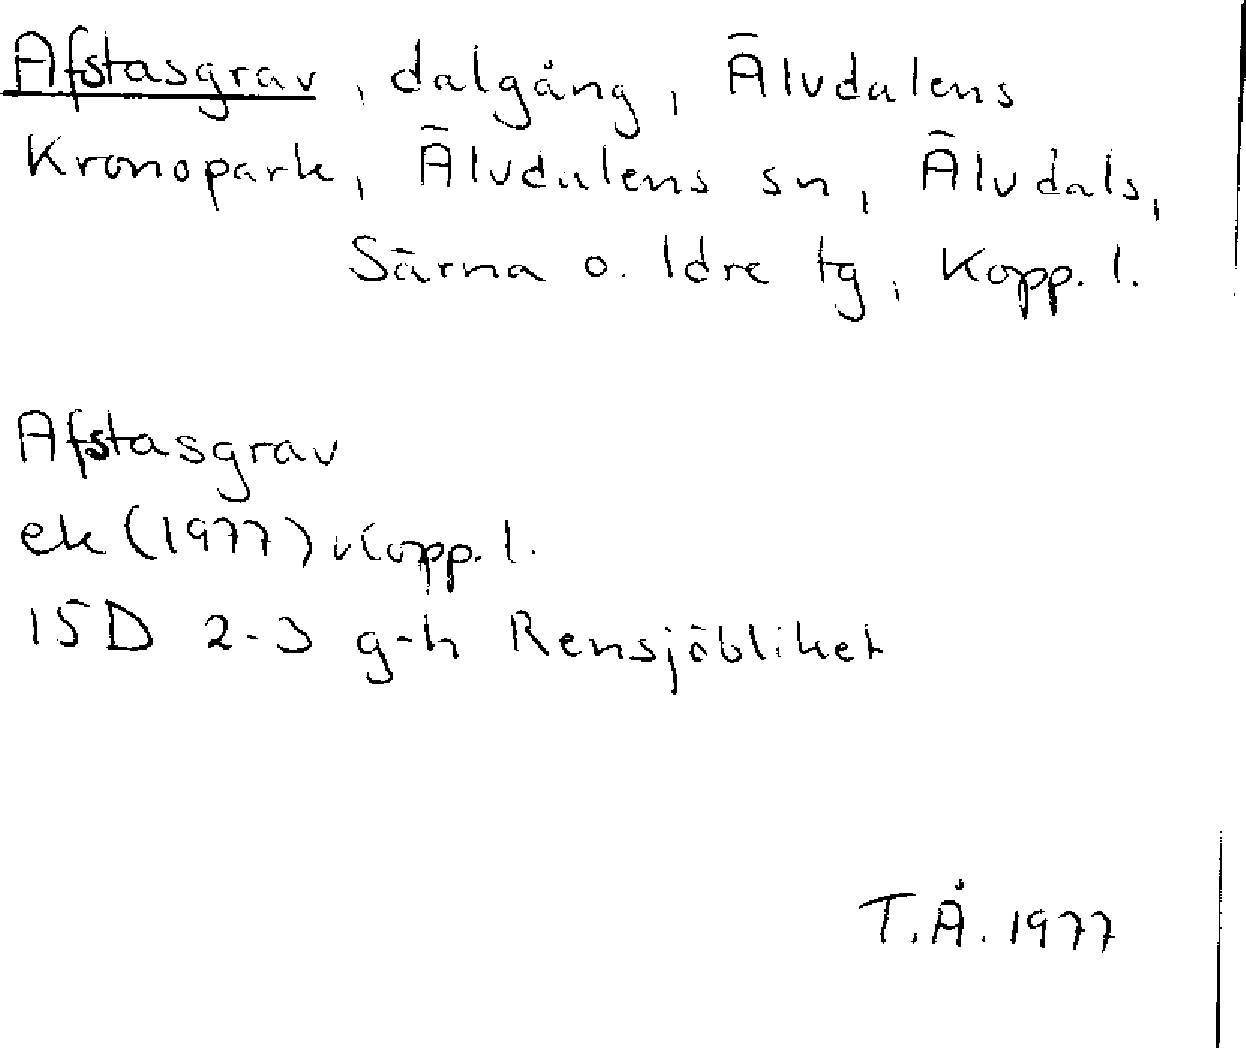 Afstasgrav, dalgång, Älvdalens
Kronopark, Älvdalens sn, Älvdals,
Särna o. Idre tg, Kopp. l.
Afstasgrav
ek (1977) Kopp. l.
15D 2-3 g-h Rensjöbliket
T.Å. 1977